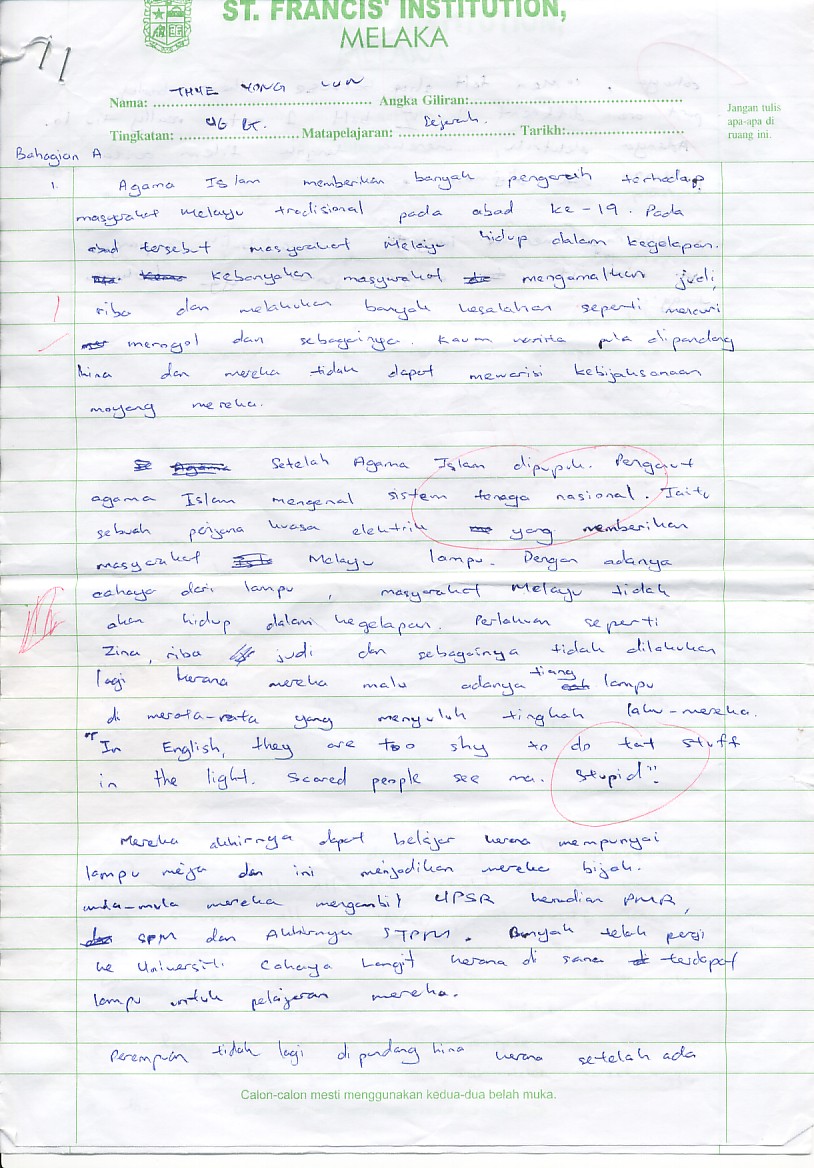 ST. FRANCIS' INSTITUTION,
MELAKA
Nama: THYE YONG LUN Angka Giliran:
Tingkatan: Matapelajaran: Sejarah. Tarikh:
Jangan tulis
apa-apa di
ruang ini.
Bahagian A
1. Agama Islam memberikan banyak pengaruh terhadap
masyarakat Melayu tradisional pada abad ke-19. Pada
abad tersebut masyarakat Melayu hidup dalam kegelapan.
Kebanyakan masyarakat mengamalkan judi,
riba dan melakukan banyak kesalahan seperti mencuri
merogol dan sebagainya. Kaum wanita pula dipandang
hina dan mereka tidak dapat mewarisi kebijaksanaan
moyang mereka.
Setelah Agama Islam dipupuk. Penganut
agama Islam mengenal sistem tenaga nasional. Iaitu
sebuah kuasa elektrik yang memberikan
masyarakat Melayu lampu. Dengan adanya
cahaya dari lampu, masyarakat Melayu tidak
akan hidup dalam kegelapan. Perlakuan seperti
Zina, riba judi dan sebagainya tidak dilakukan
lagi kerana mereka malu adanya tiang lampu
di merata-rata yang menyuluh tingkah laku-mereka.
"In English, they are too shy to do tat stuff
in the light. Scared people see ma. Stupid".
Mereka akhirnya dapat belajar kerana mempunyai
lampu meja dan ini menjadikan mereka bijak.
mula-mula mereka mengambil UPSR kemudian PMR,
SPM dan Akhirnya STPM. Banyak telah pergi
ke Universiti Cahaya Langit kerana di sana terdapat
lampu untuk pelajaran mereka.
Perempuan tidak lagi dipandang hina kerana setelah ada
Calon-calon mesti menggunakan kedua-dua belah muka.